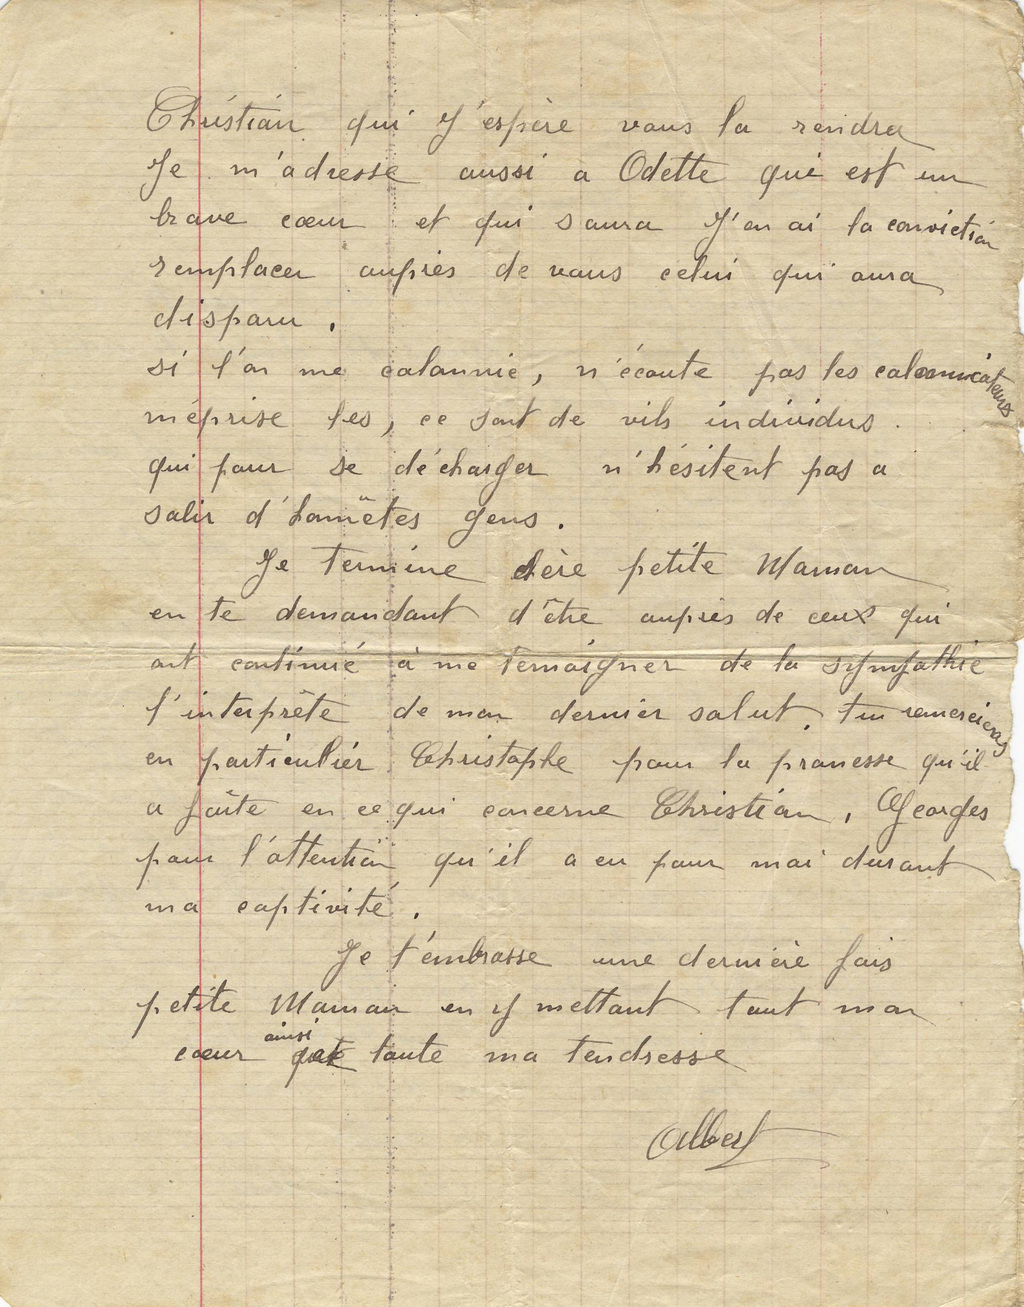 Christian qui j'espère vous la rendra
Je m'adresse aussi a Odette qui est un
brave cœur et qui saura j'en ai la conviction
remplacer auprès de vous celui qui aura
disparu.
si l'on me calomnie, n'écoute pas les calomnicateurs
méprise les, ce sont de vils individus.
qui pour se décharger n'hésitent pas a
salir d'honnêtes gens.
Je termine chère petite Maman
en te demandant d'être auprès de ceux qui
ont continué à me temoigner de la sympathie
l'interprète de mon dernier salut. tu remercieras
en particulier Christophe pour la promesse qu'il
a faîte en ce qui concerne Christian, Georges
pour l'attention qu'il a eu pour moi durant
ma captivité.
Je t'embrasse une dernière fois
petite Maman en y mettant tout mon
cœur ainsi que toute ma tendresse
Albert